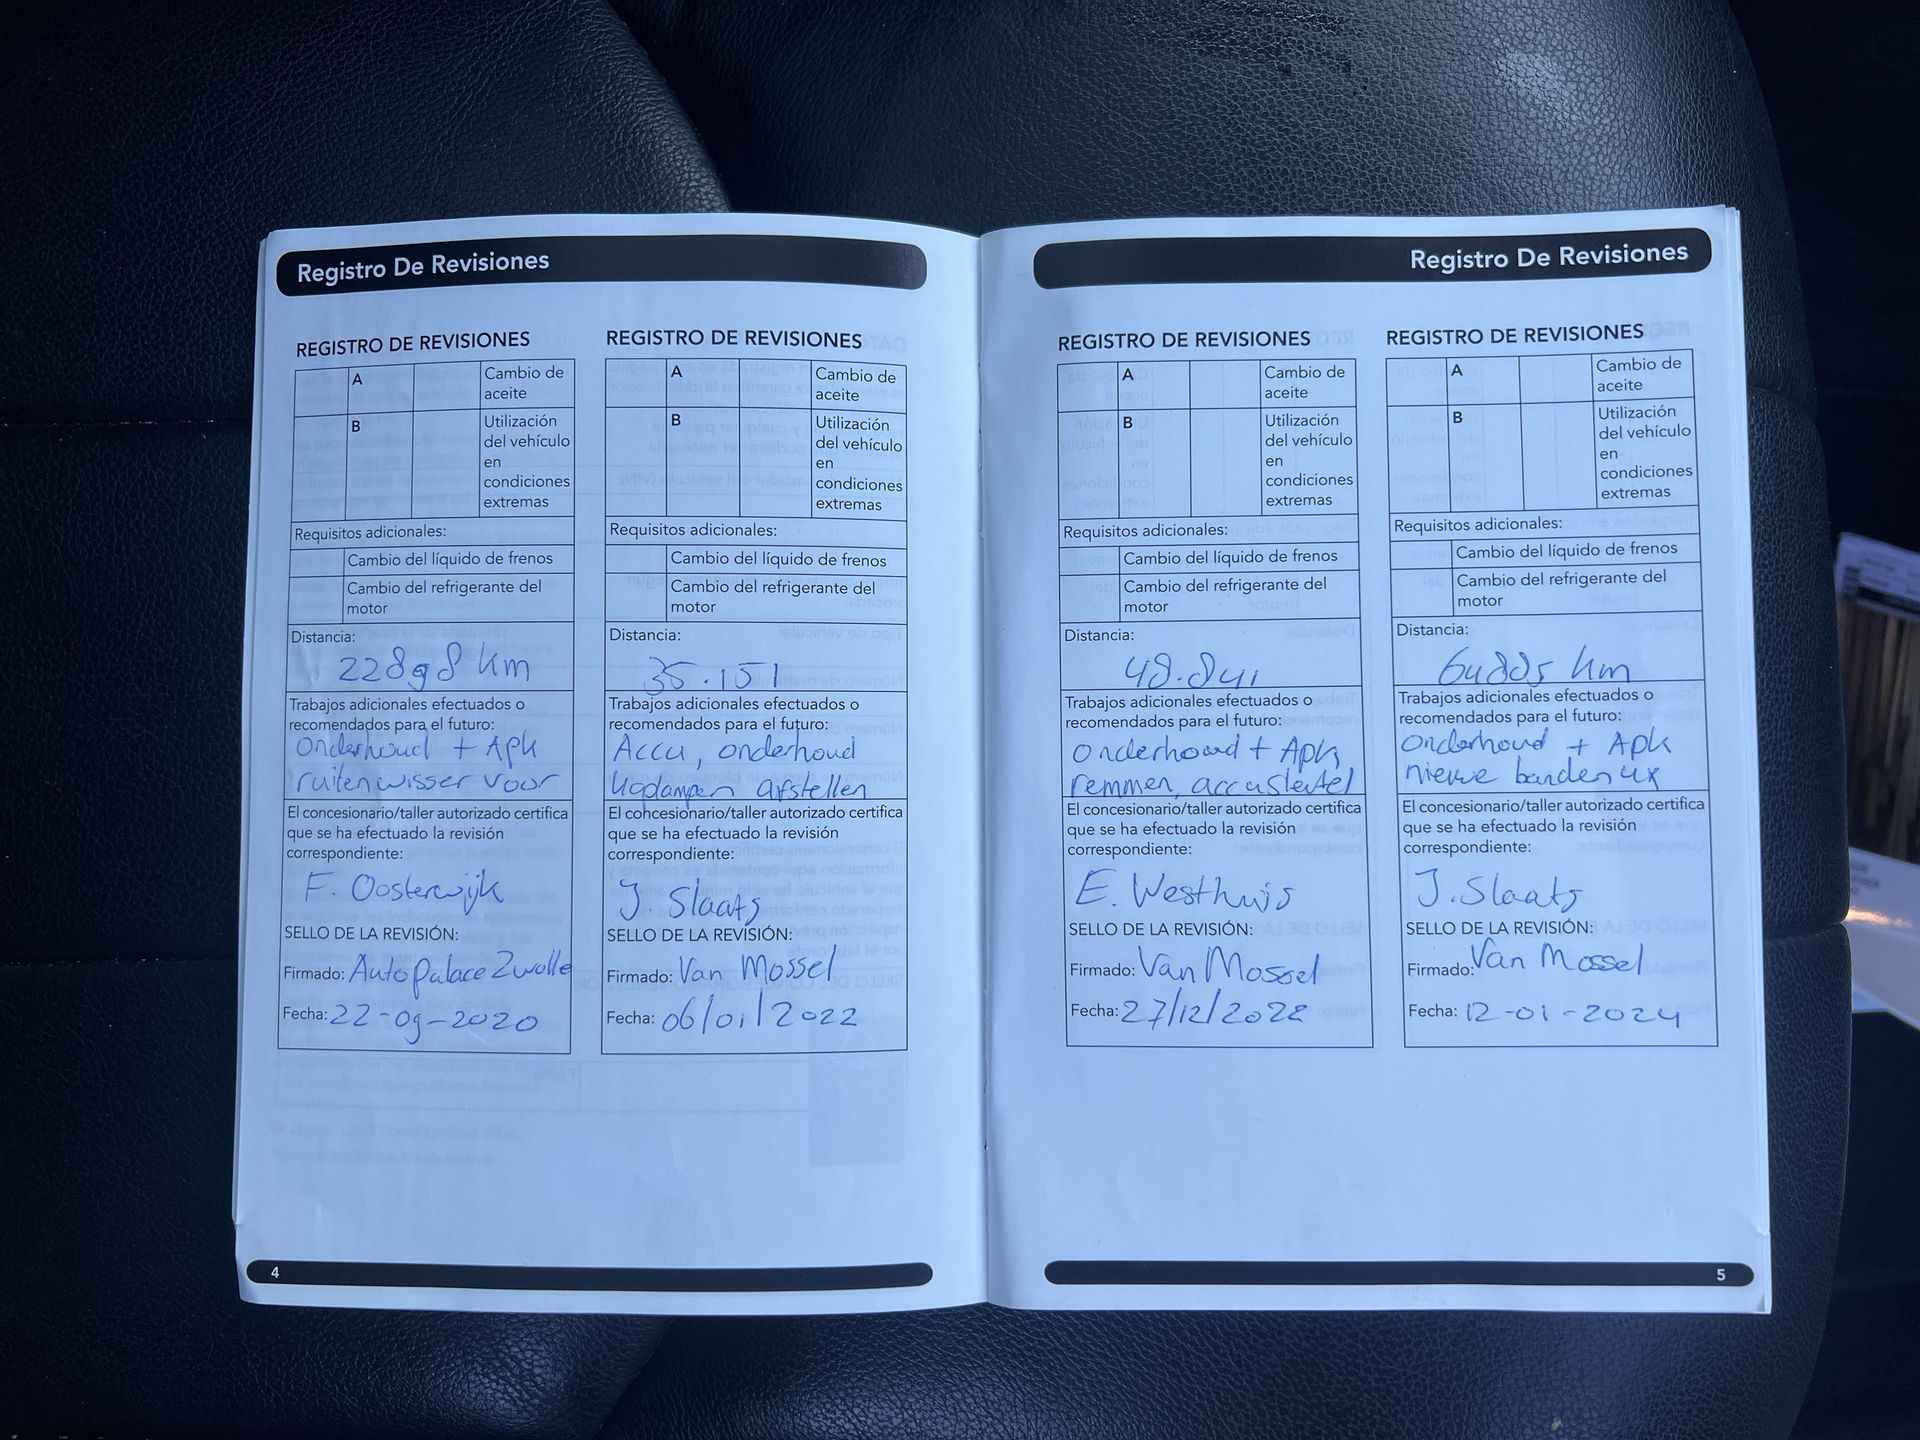 Registro De Revisiones
REGISTRO DE REVISIONES
A
Cambio de
aceite
B
Utilización
del vehículo
en
condiciones
extremas
Requisitos adicionales:
Cambio del líquido de frenos
Cambio del refrigerante del
motor
Distancia:
22898 km
Trabajos adicionales efectuados o
recomendados para el futuro:
Onderhoud + Apk
ruitenwisser voor
El concesionario/taller autorizado certifica
que se ha efectuado la revisión
correspondiente:
F. Oosterwijk
SELLO DE LA REVISIÓN:
Firmado: Auto Palace Zwolle
Fecha: 22-09-2020
REGISTRO DE REVISIONES
A
Cambio de
aceite
B
Utilización
del vehículo
en
condiciones
extremas
Requisitos adicionales:
Cambio del líquido de frenos
Cambio del refrigerante del
motor
Distancia:
35.151
Trabajos adicionales efectuados o
recomendados para el futuro:
Accu, onderhoud
afstellen
El concesionario/taller autorizado certifica
que se ha efectuado la revisión
correspondiente:
J. Slaats
SELLO DE LA REVISIÓN:
Firmado: Van Mossel
Fecha: 06/01/2022
4
Registro De Revisiones
REGISTRO DE REVISIONES
A
Cambio de
aceite
B
Utilización
del vehículo
en
condiciones
extremas
Requisitos adicionales:
Cambio del líquido de frenos
Cambio del refrigerante del
motor
Distancia:
48.841
Trabajos adicionales efectuados o
recomendados para el futuro:
Onderhoud + Apk,
remmen, accusleutel
El concesionario/taller autorizado certifica
que se ha efectuado la revisión
correspondiente:
E. Westhuis
SELLO DE LA REVISIÓN:
Firmado: Van Mossel
Fecha: 27/12/2022
REGISTRO DE REVISIONES
A
Cambio de
aceite
B
Utilización
del vehículo
en
condiciones
extremas
Requisitos adicionales:
Cambio del líquido de frenos
Cambio del refrigerante del
motor
Distancia:
64885 km
Trabajos adicionales efectuados o
recomendados para el futuro:
Onderhoud + Apk
nieuwe banden 4x
El concesionario/taller autorizado certifica
que se ha efectuado la revisión
correspondiente:
J. Slaats
SELLO DE LA REVISIÓN:
Firmado: Van Mossel
Fecha: 12-01-2024
5